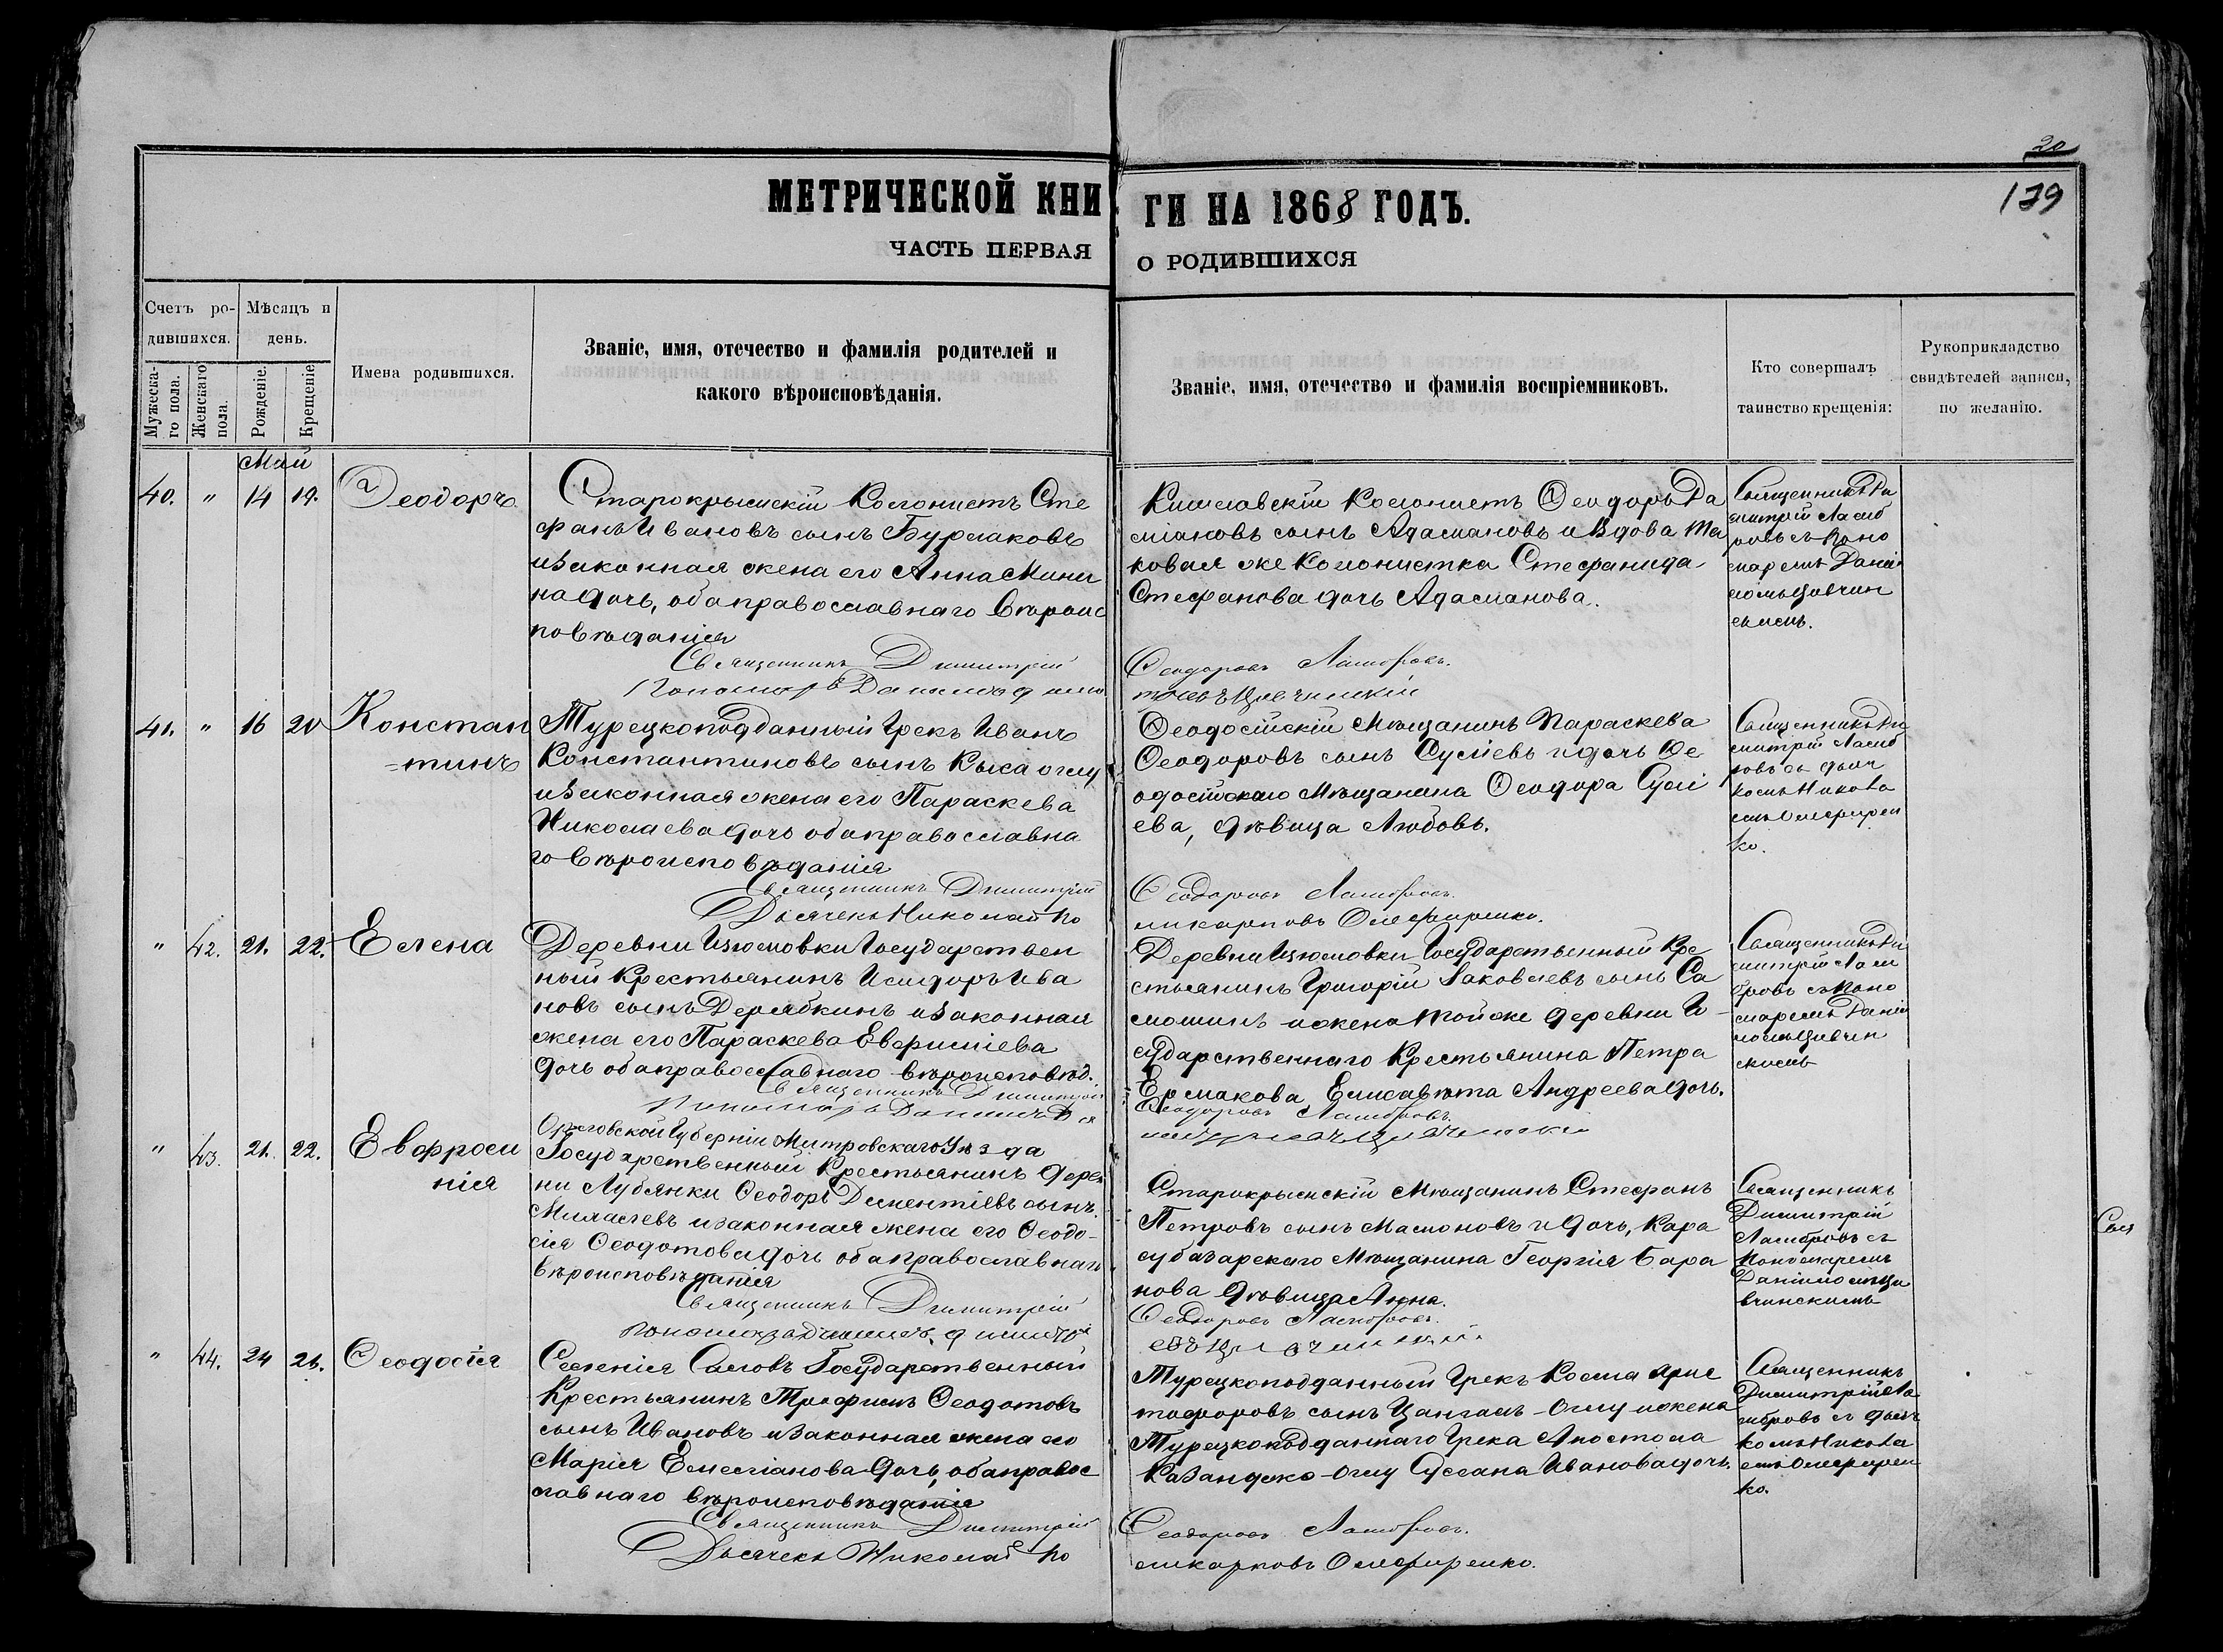 20
179
МЕТРИЧЕСКОЙ КНИ
ГИ НА 1868 ГОДЪ.
ЧАСТЬ ПЕРВАЯ
О РОДИВШИХСЯ
Счетъ ро-
дившихся.
Мужеска-
го пола.
Женскаго
пола.
Мѣсяцъ и
день.
Рожденіе.
Крещеніе.
Имена родившихся.
Званіе, имя, отечество и фамилія родителей и
какого вѣроисповѣданія.
Званіе, имя, отечество и фамилія воспріемниковъ.
Кто совершалъ
таинство крещенія:
Рукоприкладство
свидѣтелей записи,
по желанію.
Май
40. " 14 19. Ѳеодоръ.
Старокрымскій Колонистъ Сте
фанъ Ивановъ сынъ Бурлаковъ
и законная жена его Анна Мини
на дочь, оба православнаго вѣроис
повѣданія
Священникъ Димитрій
Пономарь Даниилъ
Кишлавскій Колонистъ Ѳеодоръ Да
міановъ сынъ Адамановъ и вдова та
ковая же Колонистка Стефанида
Стефанова дочь Адаманова.
Ѳеодоровъ
Священникъ Ди
митрій
съ Поно
маремъ Даніи
ломъ
41. " 16 20 Констан
-тинъ
Турецкоподданный Грекъ Иванъ
Константиновъ сынъ Кыса оглу
и законная жена его Параскева
Николаева дочь оба православна
го вѣроисповѣданія
Священникъ Димитрій
Дьячекъ Николай По
Ѳеодосійскій Мѣщанинъ Параскева
Ѳеодоровъ сынъ Суліевъ и дочь Ѳе
одосійскаго Мѣщанина Ѳеодора Сулі
ева, дѣвица Любовь.
Ѳеодоровъ
ликарповъ Олефиренко.
Священникъ Ди
митрій
съ дьяч
комъ Никола
емъ Олефирен
ко.
" 42. 21. 22. Елена
Деревни Изюмовки Государствен
ный Крестьянинъ Исидоръ Ива
новъ сынъ Дерябкинъ и законная
жена его Параскева
дочь оба православнаго вѣроисповѣд.
Священникъ Димитрій
Пономарь Даниилъ
Деревни Изюмовки Государственный Кре
стьянинъ Григорій Яковлевъ сынъ Са
мошинъ и жена той же деревни Го
сударственнаго Крестьянина Петра
Ермакова Елисавета Андреева дочь.
Ѳеодоровъ
Священникъ Ди
митрій
съ Поно
маремъ Даніи
ломъ
" 43. 21. 22. Евфроси
нія
Орловской Губерніи Дмитровскаго Уѣзда
Государственный Крестьянинъ дерев
ни Лубянки Ѳеодоръ Дементіевъ сынъ
и законная жена его Ѳеодо-
сія Ѳеодотова дочь оба православнаго
вѣроисповѣданія
Священникъ Димитрій
Старокрымскій Мѣщанинъ Стефанъ
Петровъ сынъ Мамоновъ и дочь, Кара
субазарскаго Мѣщанина Георгія Бара
нова дѣвица Анна.
Ѳеодоровъ
Священникъ
Димитрій
съ
Пономаремъ
Даніиломъ
" 44. 24 26. Ѳеодосія
Селенія Саловъ Государственный
Крестьянинъ Трофимъ Ѳеодотовъ
сынъ Ивановъ и законная жена его
Марія Емеліанова дочь, оба правос
лавнаго вѣроисповѣданія
Священникъ Димитрій
Дьячекъ Николай По
Турецкоподданный Грекъ Косма Хрис
тофоровъ сынъ -Оглу и жена
Турецкоподданнаго Грека Апостола
-Оглу Сусана Иванова дочь.
Ѳеодоровъ
ликарповъ Олефиренко.
Священникъ
Димитрій
съ дьяч
комъ Никола
емъ Олефирен
ко.